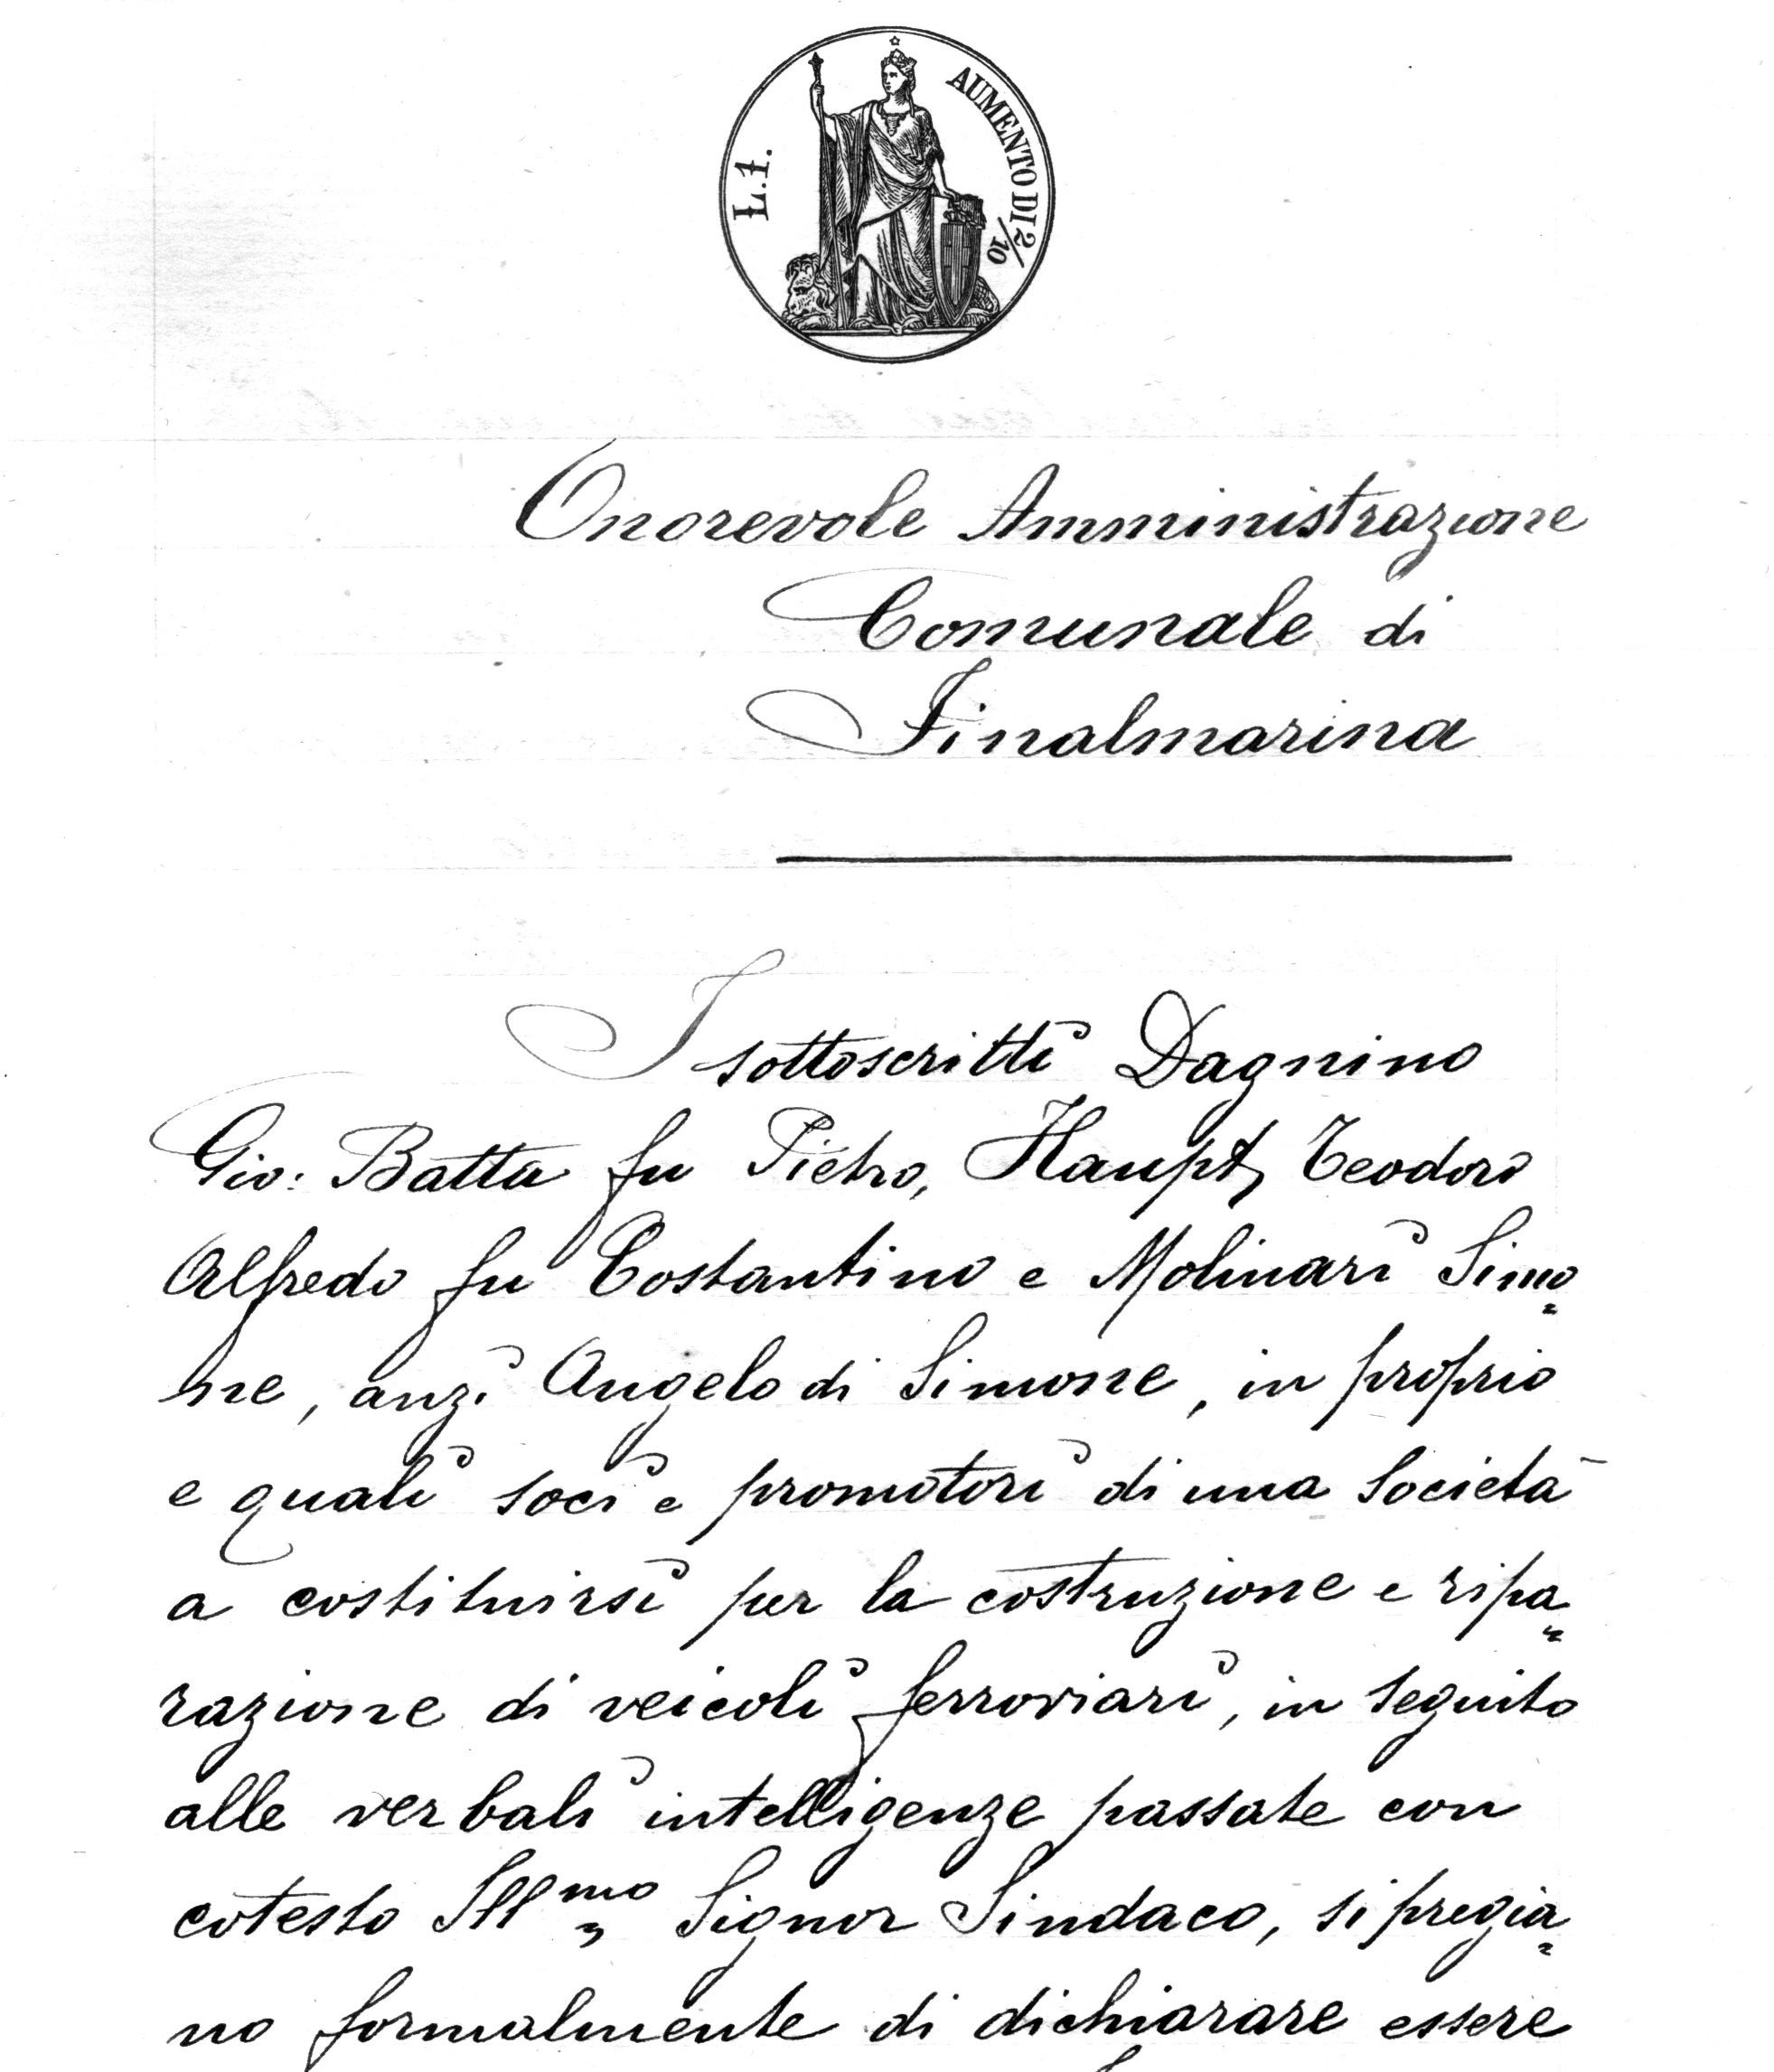 L.1.
AUMENTO DI 2/10
Onorevole Amministrazione
Comunale di
Finalmarina
I sottoscritti Dagnino
Gio: Batta fu Pietro, Haupt, Teodoro
Alfredo fu Costantino e Molinari Simo=
ne, anzi Angelo di Simone, in proprio
e quali soci e promotori di una Società
a costituirsi per la costruzione e ripa=
razione di veicoli ferroviari, in seguito
alle verbali intelligenze passate con
cotesto Ill.mo Signor Sindaco, si pregia=
no formalmente di dichiarare essere